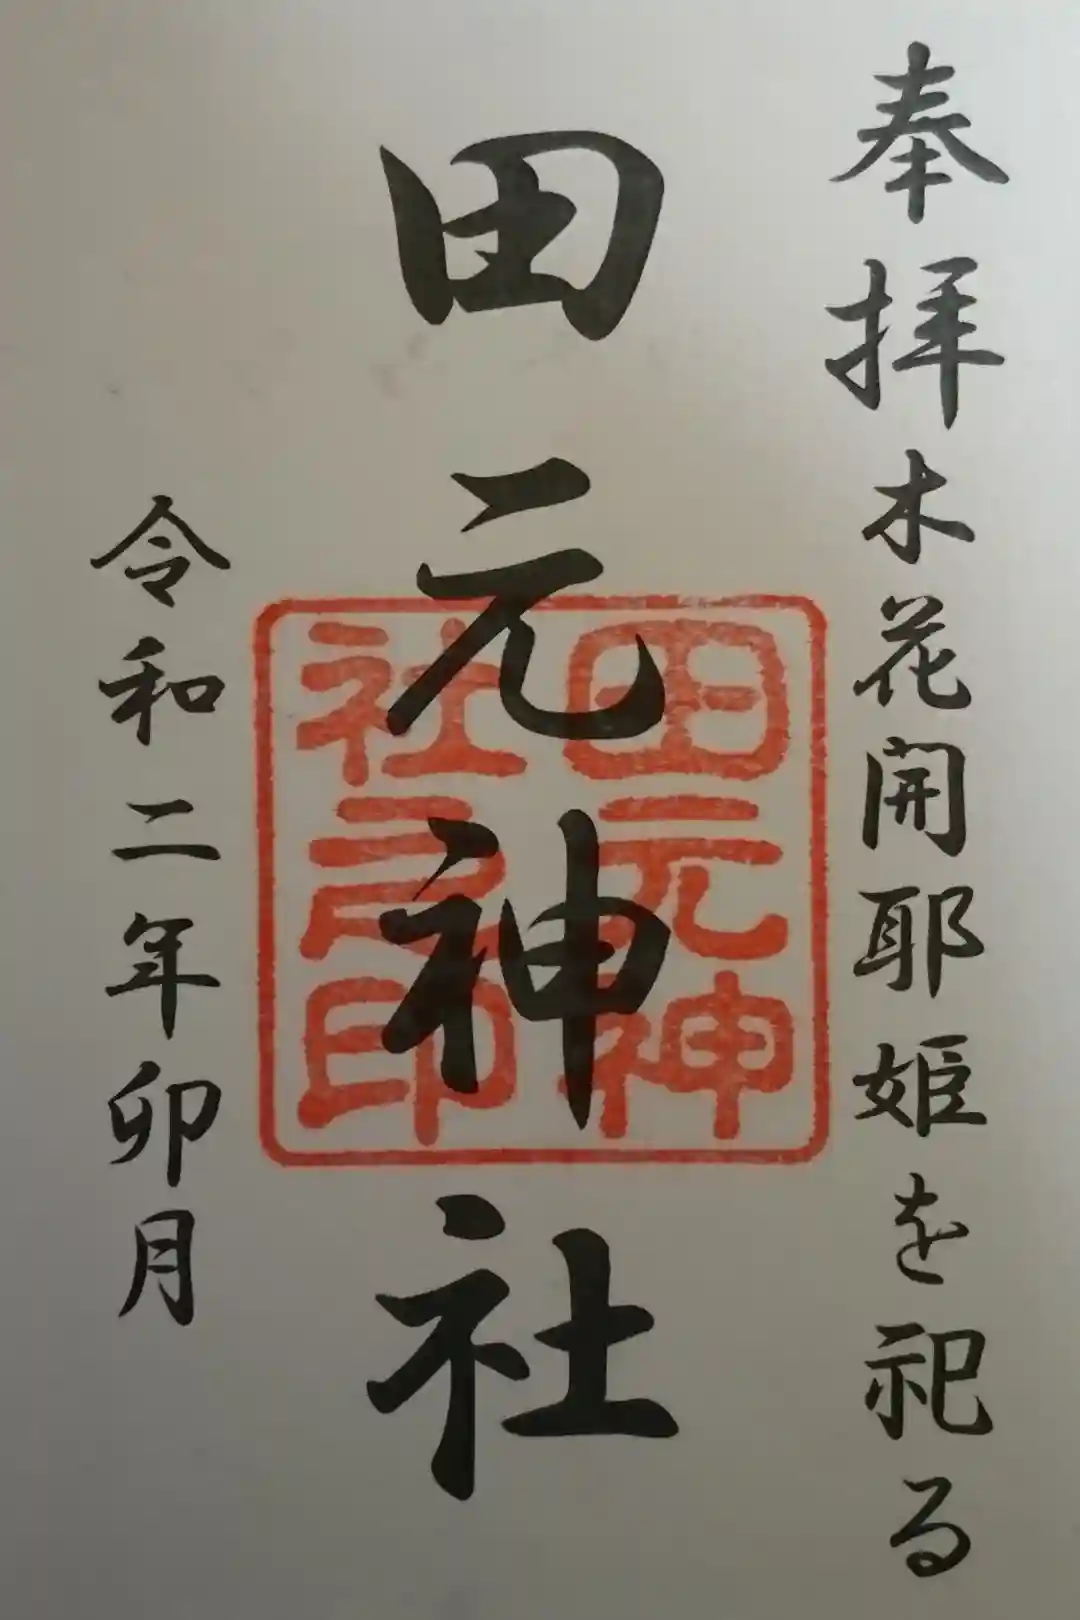 奉拝木花開耶姫を祀る
田元神社
田元神
社之印
令和二年卯月